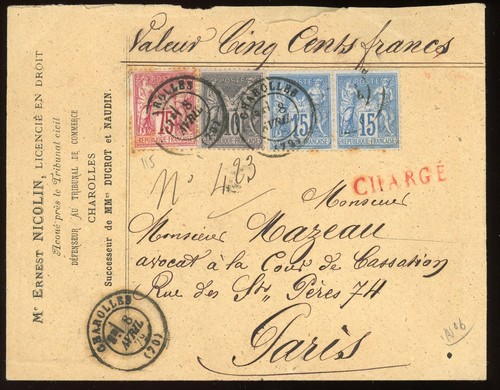 Valeur Cinq Cents francs
Me ERNEST NICOLIN, LICENCIÉ EN DROIT
Avoué près le Tribunal civil
DÉFENSEUR AU TRIBUNAL DE COMMERCE
CHAROLLES
Successeur de MMes DUCROT et NAUDIN
75
10
15
15
REPUBLIQUE FRANÇAISE
REPUBLIQUE FRANÇAISE
CHAROLLES
8
AVRIL
CHAROLLES
8
AVRIL
115
No 433
CHARGÉ
Monsieur
Monsieur Mazeau
avocat à la Cour de Cassation
Rue des Sts Pères 74
Paris
CHAROLLES
8
AVRIL
(70)